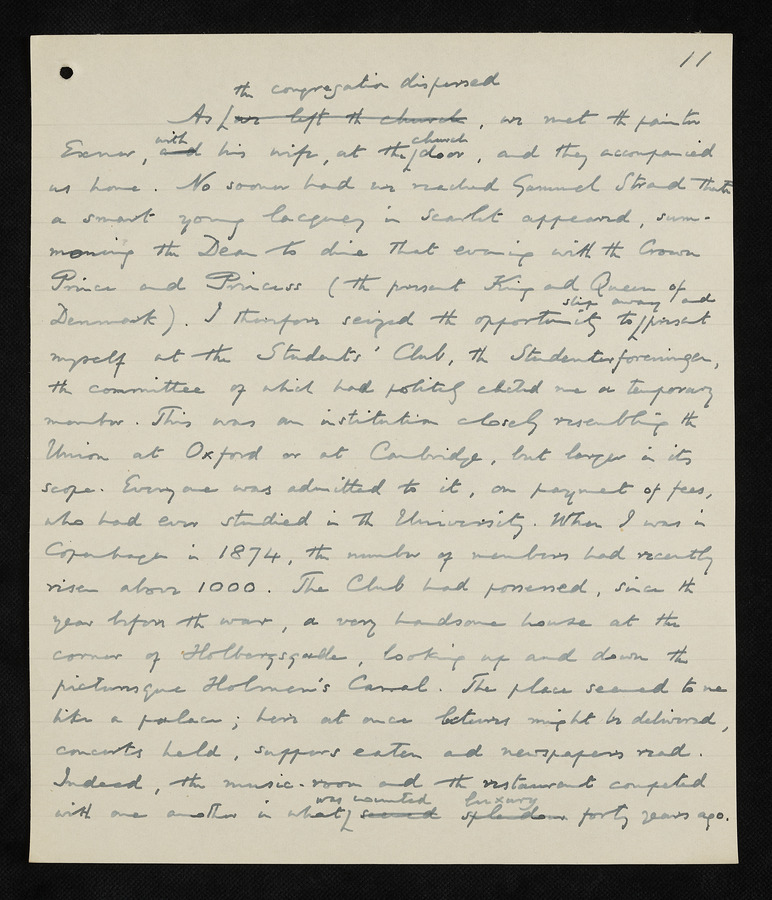 11
the congregation dispersed
As we left the church, we met the painter
with church
Exner, and his wife, at the door, and they accompanied
us home. No sooner had we reached Gammel Strand than
a smart young lacquey in scarlet appeared, sum-
moning the Dean to dine that evening with the Crown
Prince and Princess (the present King and Queen of
slip away and
Denmark). I therefore seized the opportunity to present
myself at the Students' Club, the Studenterforeningen,
the committee of which had politely elected me a temporary
member. This was an institution closely resembling the
Union at Oxford or at Cambridge, but larger in its
scope. Every one was admitted to it, on payment of fees,
who had ever studied in the University. When I was in
Copenhagen in 1874, the number of members had recently
risen above 1000. The Club had possessed, since the
year before the war, a very handsome house at the
corner of Holbergsgade, looking up and down the
picturesque Holmen's Canal. The place seemed to me
like a palace; here at once lectures might be delivered,
concerts held, suppers eaten and newspapers read.
Indeed, the music-room and the restaurant competed
was counted luxury
with one another in what seemed splendour forty years ago.